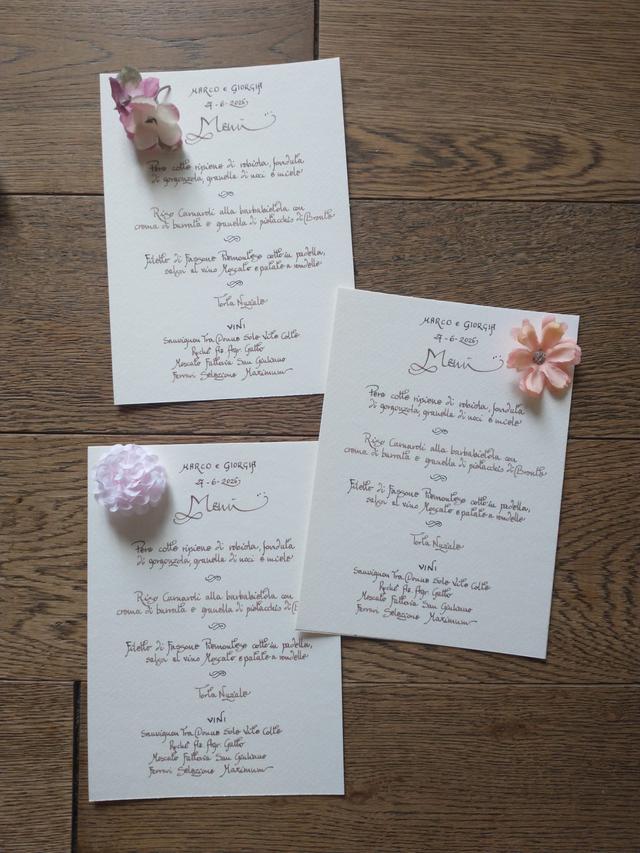 MARCO e GIORGIA
27-6-2025
Menù
Pera cotta ripiena di robiola, fonduta
di gorgonzola, granella di noci e miele
Riso Carnaroli alla barbabietola con
crema di burrata e granella di pistacchio di Bronte
Filetto di Fassone Piemontese cotto in padella,
salsa al vino Moscato e patate a rondelle
Torta Nuziale
VINI
Sauvignon Tra Donne Sole Vite Colte
Ruché Az. Agr. Gatto
Moscato Fattoria San Giuliano
Ferrari Selezione Maximum
MARCO e GIORGIA
27-6-2025
Menù
Pera cotta ripiena di robiola, fonduta
di gorgonzola, granella di noci e miele
Riso Carnaroli alla barbabietola con
crema di burrata e granella di pistacchio di Bronte
Filetto di Fassone Piemontese cotto in padella,
salsa al vino Moscato e patate a rondelle
Torta Nuziale
VINI
Sauvignon Tra Donne Sole Vite Colte
Ruché Az. Agr. Gatto
Moscato Fattoria San Giuliano
Ferrari Selezione Maximum
MARCO e GIORGIA
27-6-2025
Menù
Pera cotta ripiena di robiola, fonduta
di gorgonzola, granella di noci e miele
Riso Carnaroli alla barbabietola con
crema di burrata e granella di pistacchio di
Filetto di Fassone Piemontese cotto in padella,
salsa al vino Moscato e patate a rondelle
Torta Nuziale
VINI
Sauvignon Tra Donne Sole Vite Colte
Ruché Az. Agr. Gatto
Moscato Fattoria San Giuliano
Ferrari Selezione Maximum